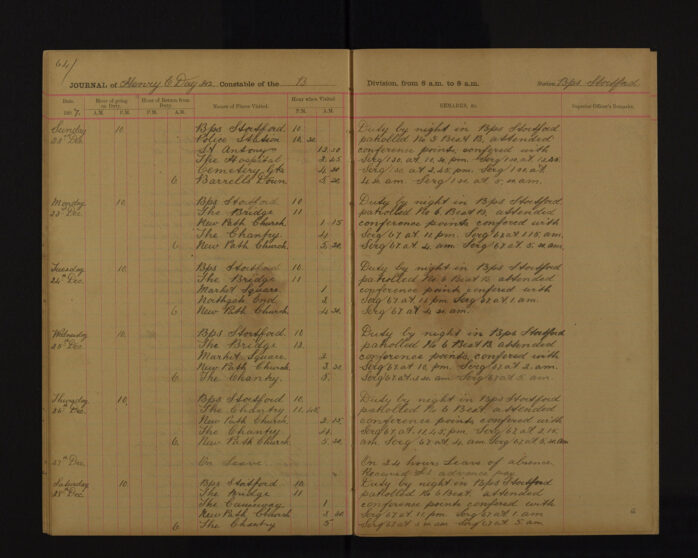 64/
JOURNAL of Harvey C Day Constable of the B Division, from 8 a.m. to 8 a.m. Station Bps Stortford
Date. Hour of going on Duty. Hour of Return from Duty. Names of Places Visited. Hour when Visited REMARKS, &c. Superior Officer's Remarks.
190 7. P.M. A.M. P.M. A.M. P.M. A.M.
Sunday 10. Bps Stortford 10. Duty by night in Bps Stortford
Dec. Police Station 10. 30. patrolled No 5 Beat B. attended
St Antony conference points conferred with
The Hospital 2.45 Serg 130. at 10.30. pm. Serg 130 at
Cemetery Gts 4.30 Serg 130. at 2.45. pm. Serg 130. at
6 Barrells Down 5.30 4.30 am Serg 130. at 5.30 am.
Monday 10. Bps Stortford 10. Duty by night in Bps Stortford
23rd Dec. The Bridge 11 patrolled No 6 Beat B. attended
New Path Church 1.15 conference points conferred with
The Chantry 4. Serg 67 at pm. Serg 67 at 1.15, am.
6 New Path Church 5.30. Serg 67 at 4. am Serg 67 at 5.30 am.
Tuesday 10. Bps Stortford 10. Duty by night in Bps Stortford
24th Dec. The Bridge 11 patrolled No 6 Beat B. attended
Market Square 1 conference points confered with
Northgate End 3 Serg 67 at pm Serg 67 at 1. am.
6 New Path Church 4.30 Serg 67 at 4.30 am.
Wednesday 10. Bps Stortford 10. Duty by night in Bps Stortford
25th Dec. The Bridge patrolled No 6 Beat B. attended
Market Square 2 conference points, confered with
New Path Church 3.30 Serg 67 at pm. Serg 67 at 2. am.
6 The Chantry. 5. Serg 67 at 3.30 am Serg 67 at 5. am.
Thursday 10. Bps Stortford 10. Duty by night in Bps Stortford
26th Dec. The Chantry 11.45. patrolled No 6 Beat. attended
New Path Church 2.15 conference points conferred with
The Chantry 4. Serg 67 at 11.45. pm. Serg 67 at 2.15
6. New Path Church 5.30 am Serg 67 at 4. am Serg 67 at 5.30 am
27th Dec. On Leave On 24 hours Leave of absence.
Received advance pay
Saturday 10 Bps Stortford 10 Duty by night in Bps Stortford
28th Dec. The Bridge 11 patrolled No 6 Beat. attended
The Causeway 1 conference points confered with
New Path Church 3.30 Serg 67 at Serg 67 at 1. am
6 The Chantry 5. Serg 67 at 3.30 am Serg 67 at 5 am